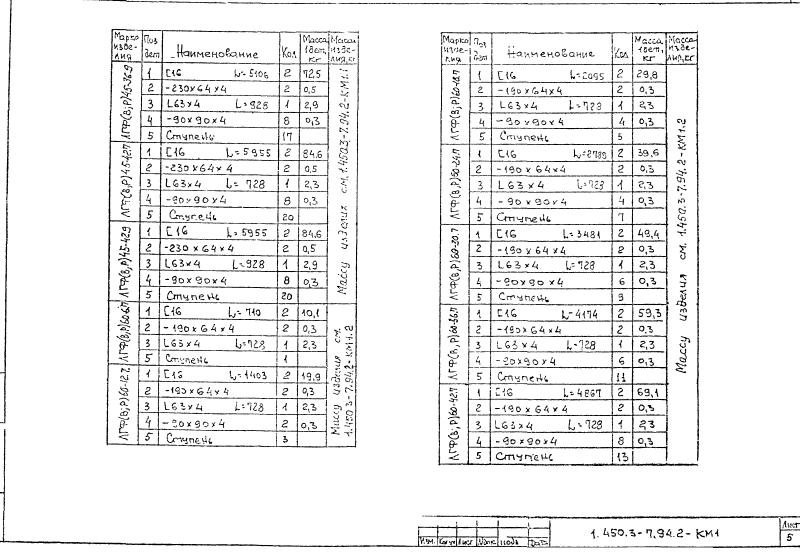 Марка изделия Поз дет Наименование Кол Масса 1дет, кг Масса изделия, кг
ЛГФ(В;Р)45-36.9
1 [16 L=5106 2 72,5
2 -230×64×4 2 0,5
3 L63×4 L=928 1 2,9
4 -90×90×4 8 0,3
5 Ступень 17
ЛГФ(В;Р)45-42.7
1 [16 L=5955 2 84,6
2 -230×64×4 2 0,5
3 L63×4 L=728 1 2,3
4 -90×90×4 8 0,3
5 Ступень 20
ЛГФ(В;Р)45-42.9
1 [16 L=5955 2 84,6
2 -230×64×4 2 0,5
3 L63×4 L=928 1 2,9
4 -90×90×4 8 0,3
5 Ступень 20
Массу изделия см. 1.450.3-7.94.2-КМ1.1
ЛГФ(В;Р)60-6.7
1 [16 L=710 2 10,1
2 -190×64×4 2 0,3
3 L63×4 L=728 1 2,3
5 Ступень 1
ЛГФ(В;Р)60-12.7
1 [16 L=1403 2 19,9
2 -190×64×4 2 0,3
3 L63×4 L=728 1 2,3
4 -90×90×4 2 0,3
5 Ступень 3
Массу изделия см. 1.450.3-7.94.2-КМ1.2
Марка изделия Поз дет Наименование Кол Масса 1дет, кг Масса изделия, кг
ЛГФ(В;Р)60-18.7
1 [16 L=2095 2 29,8
2 -190×64×4 2 0,3
3 L63×4 L=728 1 2,3
4 -90×90×4 4 0,3
5 Ступень 5
ЛГФ(В;Р)60-24.7
1 [16 L=2789 2 39,6
2 -190×64×4 2 0,3
3 L63×4 L=728 1 2,3
4 -90×90×4 4 0,3
5 Ступень 7
ЛГФ(В;Р)60-30.7
1 [16 L=3481 2 49,4
2 -190×64×4 2 0,3
3 L63×4 L=728 1 2,3
4 -90×90×4 6 0,3
5 Ступень 9
ЛГФ(В;Р)60-36.7
1 [16 L=4174 2 59,3
2 -190×64×4 2 0,3
3 L63×4 L=728 1 2,3
4 -90×90×4 6 0,3
5 Ступень 11
ЛГФ(В;Р)60-42.7
1 [16 L=4867 2 69,1
2 -190×64×4 2 0,3
3 L63×4 L=728 1 2,3
4 -90×90×4 8 0,3
5 Ступень 13
Массу изделия см. 1.450.3-7.94.2-КМ1.2
Изм. Кол.уч Лист №док Подп Дата
1.450.3-7.94.2-КМ1
Лист
5